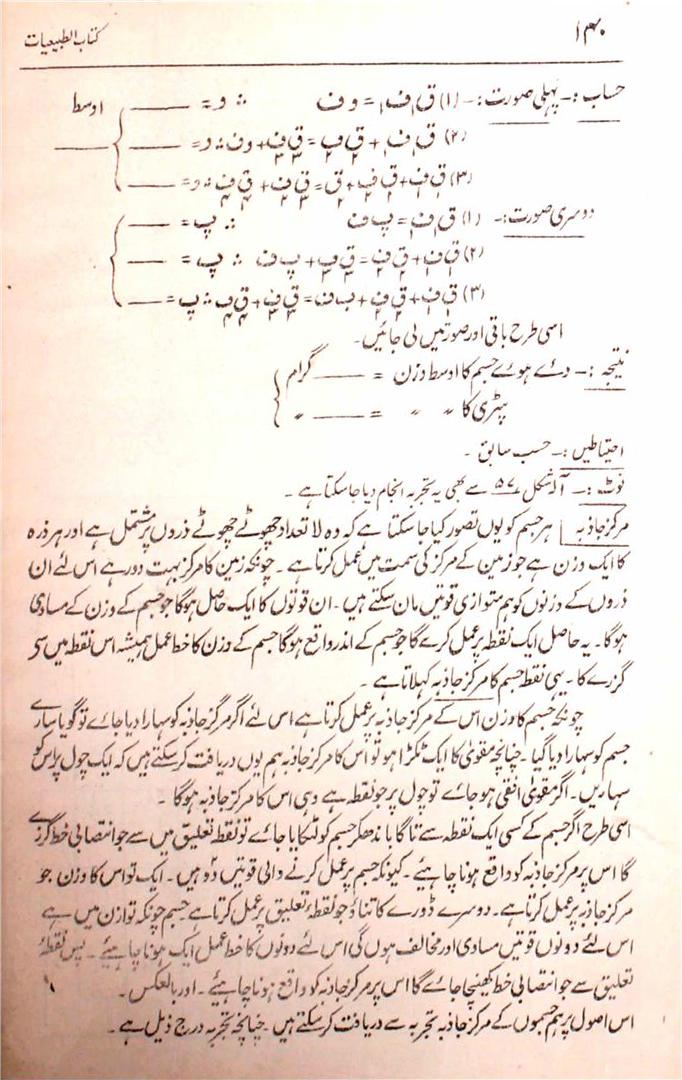 ۱۴۰ کتاب الطبیعیات
حساب :- پہلی صورت :- (۱) ق۱ ف۱ = و ف ∴ و = ——— اوسط
(۲) ق۱ ف۱ + ق۲ ف۲ = ق۳ ف۳ + و ف ∴ و = ———
(۳) ق۱ ف۱ + ق۲ ف۲ + ق = ق۳ ف۳ + ق۴ ف۴ ∴ و = ———
دوسری صورت :- (۱) ق۱ ف۱ = پ ف ∴ پ = ———
(۲) ق۱ ف۱ + ق۲ ف۲ = ق۳ ف۳ + پ ف ∴ پ = ———
(۳) ق۱ ف۱ + ق۲ ف۲ + پ ف = ق۳ ف۳ + ق۴ ف۴ ∴ پ = ———
اسی طرح باقی اور صورتیں لی جائیں۔
نتیجہ :- دئے ہوے جسم کا اوسط وزن = ——— گرام
پٹری کا 〃 〃 = ——— 〃
احتیاطیں :- حسب سابق ۔
نوٹ :- آلہ شکل ۵۷ سے بھی یہ تجربہ انجام دیا جا سکتا ہے ۔
مرکز جاذبہ | ہر جسم کو یوں تصور کیا جا سکتا ہے کہ وہ لا تعداد چھوٹے چھوٹے ذروں پر مشتمل ہے اور ہر ذرہ
کا ایک وزن ہے جو زمین کے مرکز کی سمت میں عمل کرتا ہے ۔ چونکہ زمین کا مرکز بہت دور ہے اس لئے ان
ذروں کے وزنوں کو ہم متوازی قوتیں مان سکتے ہیں ۔ ان قوتوں کا ایک حاصل ہوگا جو جسم کے وزن کے مساوی
ہوگا ۔ یہ حاصل ایک نقطہ پر عمل کرے گا جو جسم کے اندر واقع ہوگا جسم کے وزن کا خط عمل ہمیشہ اس نقطہ میں سے
گزرے گا ۔ یہی نقطہ جسم کا مرکز جاذبہ کہلاتا ہے ۔
چونکہ جسم کا وزن اس کے مرکز جاذبہ پر عمل کرتا ہے اس لئے اگر مرکز جاذبہ کو سہارا دیا جاے تو گویا سارے
جسم کو سہارا دیا گیا ۔ چنانچہ مقویٰ کا ایک ٹکڑا ہو تو اس کا مرکز جاذبہ ہم یوں دریافت کر سکتے ہیں کہ ایک چول پر اس کو
سہاریں ۔ اگر مقویٰ افقی ہو جاے تو چول پر جو نقطہ ہے وہی اس کا مرکز جاذبہ ہوگا ۔
اسی طرح اگر جسم کے کسی ایک نقطہ سے تاگا باندھکر جسم کو لٹکایا جاے تو نقطہ تعلیق میں سے جو انتصابی خط گزرے
گا اس پر مرکز جاذبہ کو واقع ہونا چاہیئے ۔ کیونکہ جسم پر عمل کرنے والی قوتیں دو ہیں ۔ ایک تو اس کا وزن جو
مرکز جاذبہ پر عمل کرتا ہے ۔ دوسرے ڈورے کا تناؤ جو نقطہ تعلیق پر عمل کرتا ہے جسم چونکہ توازن میں ہے
اس لئے دونوں قوتیں مساوی اور مخالف ہوں گی اس لئے دونوں کا خط عمل ایک ہونا چاہیئے ۔ پس نقطۂ
تعلیق سے جو انتصابی خط کھینچا جاے گا اس پر مرکز جاذبہ کو واقع ہونا چاہیئے ۔ اور بالعکس ۔
اس اصول پر ہم جسموں کے مرکز جاذبہ تجربہ سے دریافت کر سکتے ہیں ۔ چنانچہ تجربہ درج ذیل ہے ۔